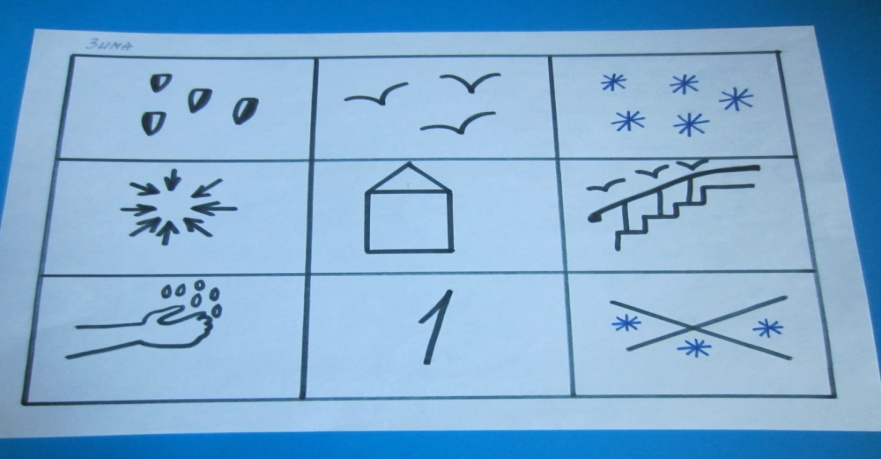 Зима
1